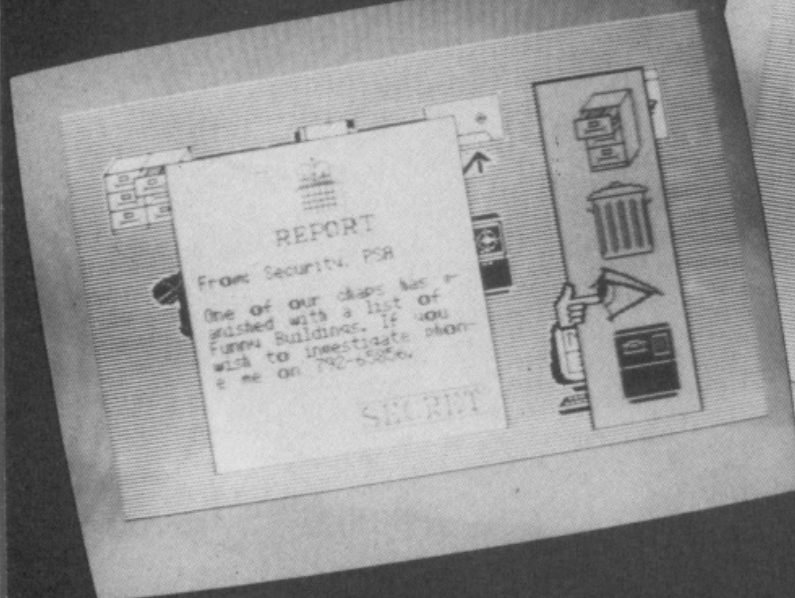 REPORT
From: Security. PSA
One of our chaps has
anished with a list of
Funny Buildings. If you
wish to investigate phon-
e me on 792-65856.
SECRET